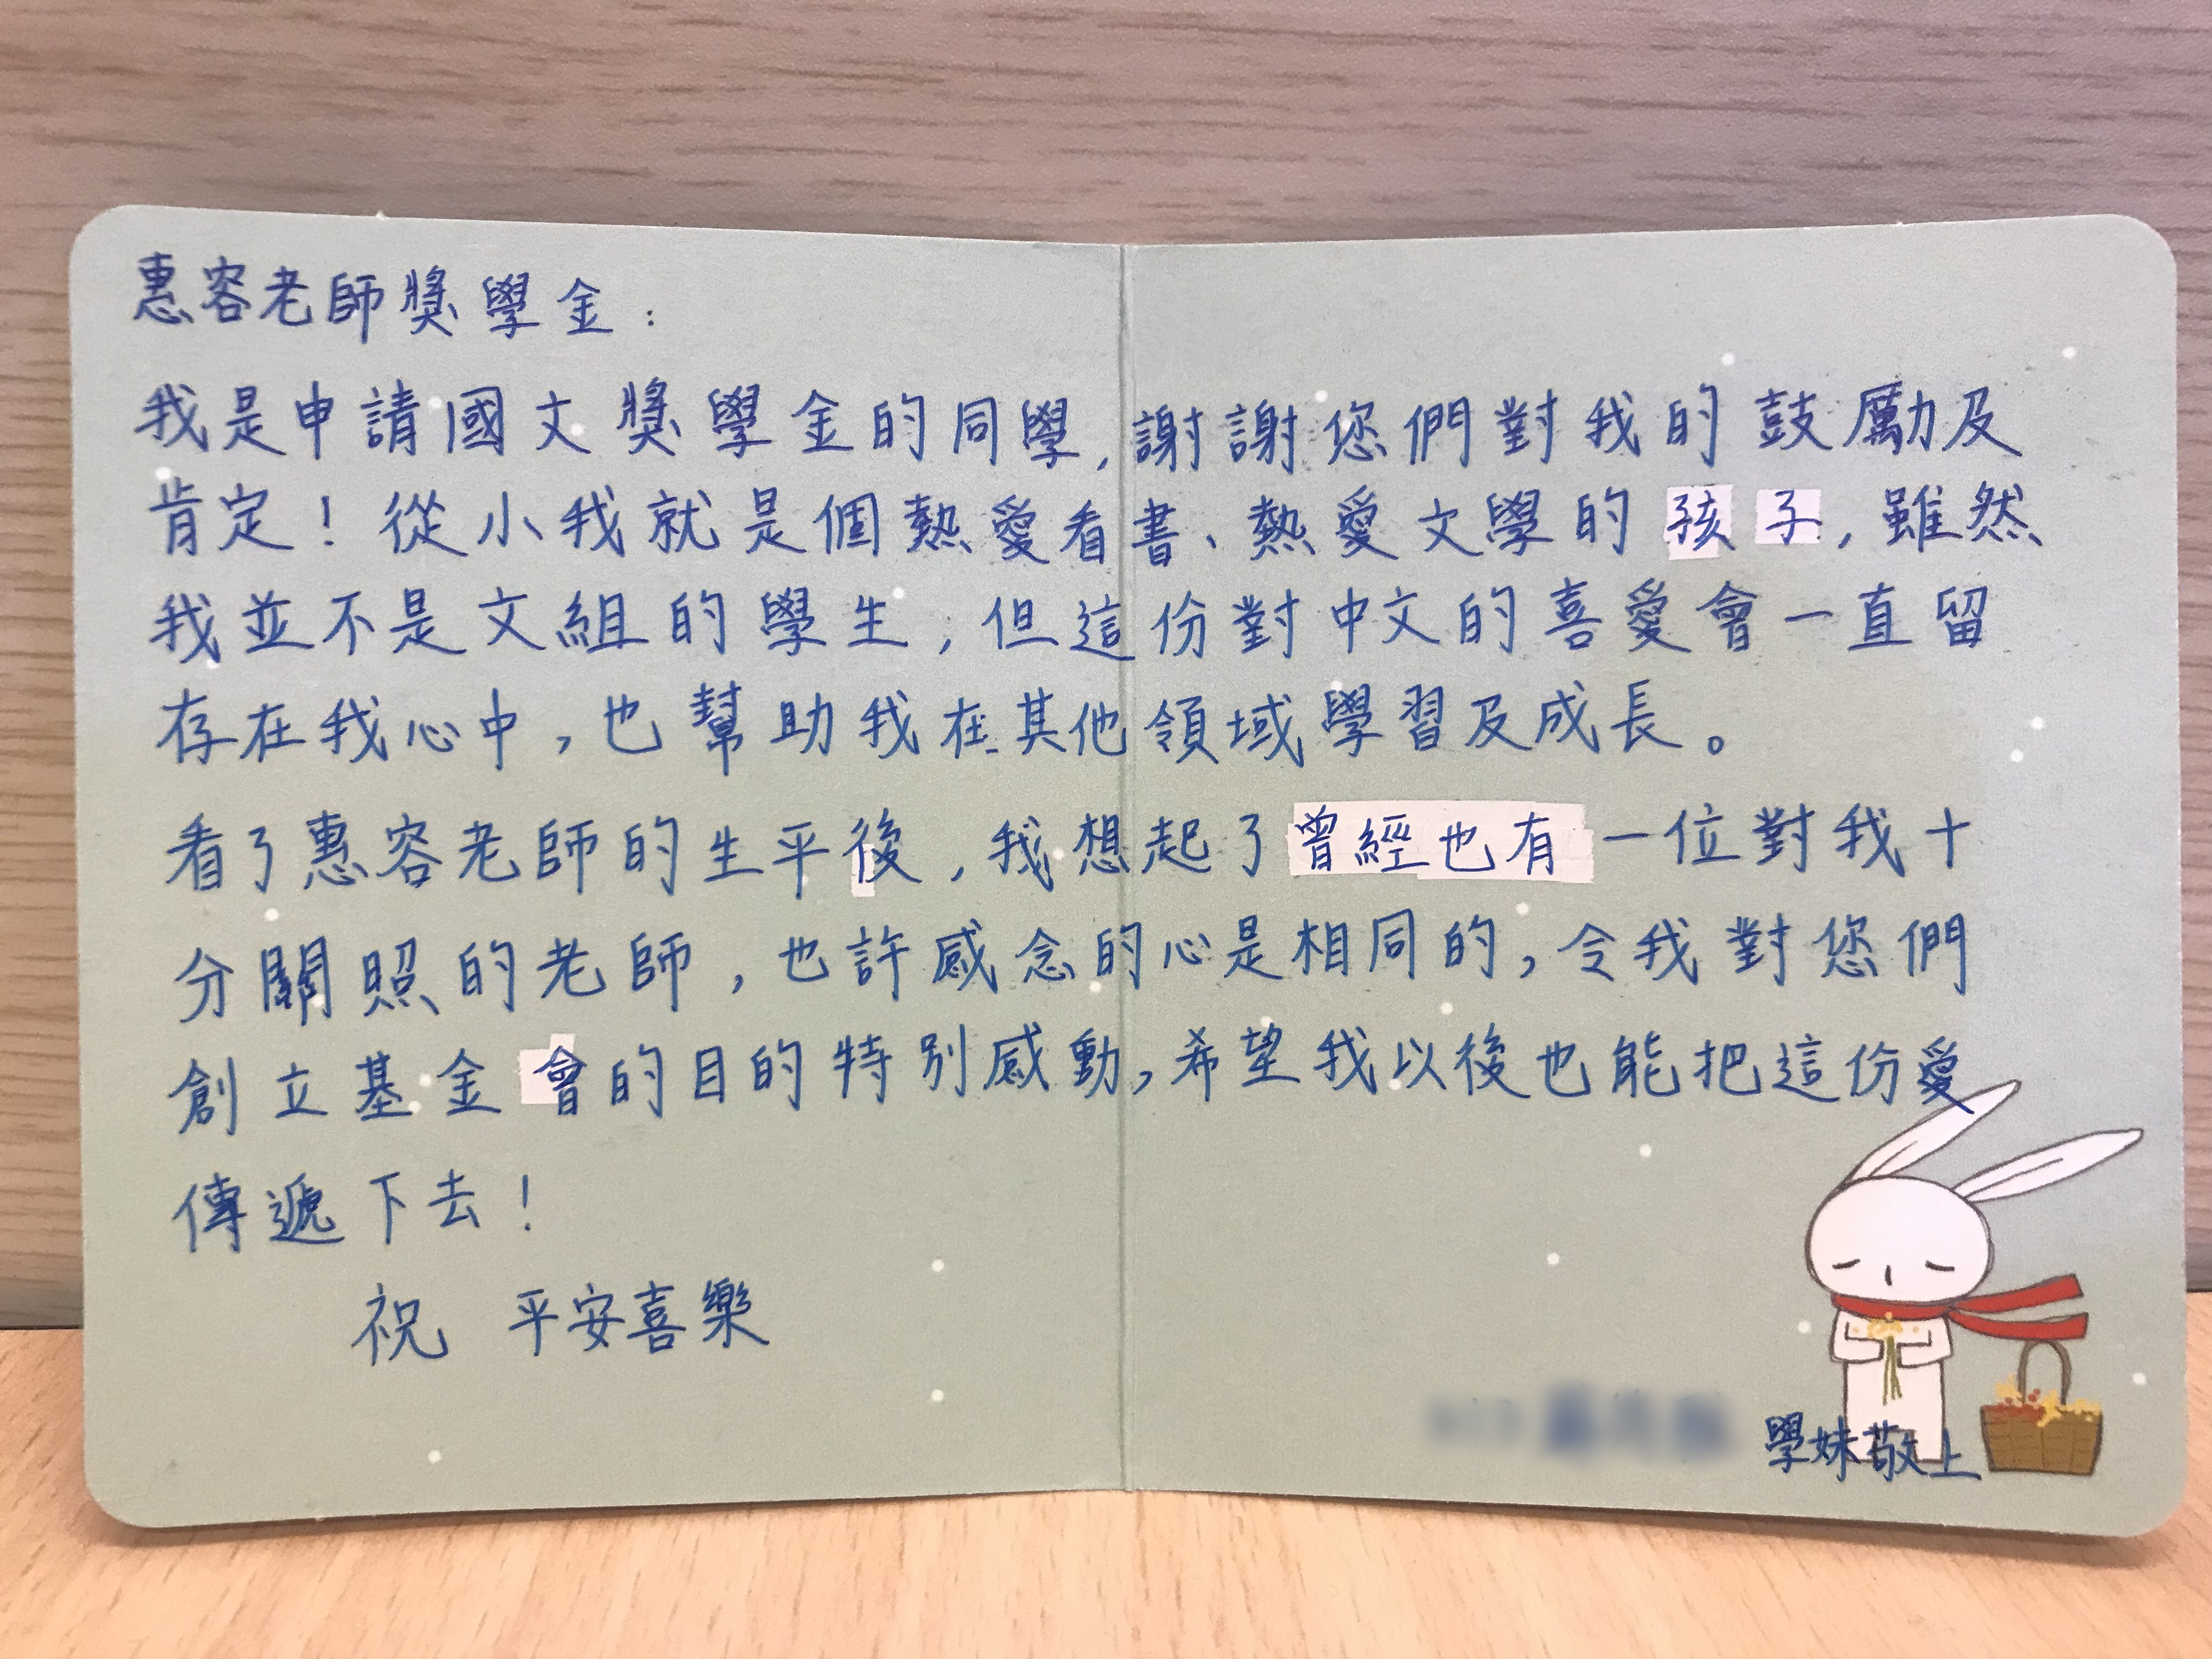 惠容老師獎學金：
我是申請國文獎學金的同學,謝謝您們對我的鼓勵及
肯定！從小我就是個熱愛看書、熱愛文學的孩子,雖然
我並不是文組的學生,但這份對中文的喜愛會一直留
存在我心中,也幫助我在其他領域學習及成長。
看了惠容老師的生平後,我想起了曾經也有一位對我十
分關照的老師,也許感念的心是相同的,令我對您們
創立基金會的目的特別感動,希望我以後也能把這份愛
傳遞下去！
祝 平安喜樂
學妹敬上